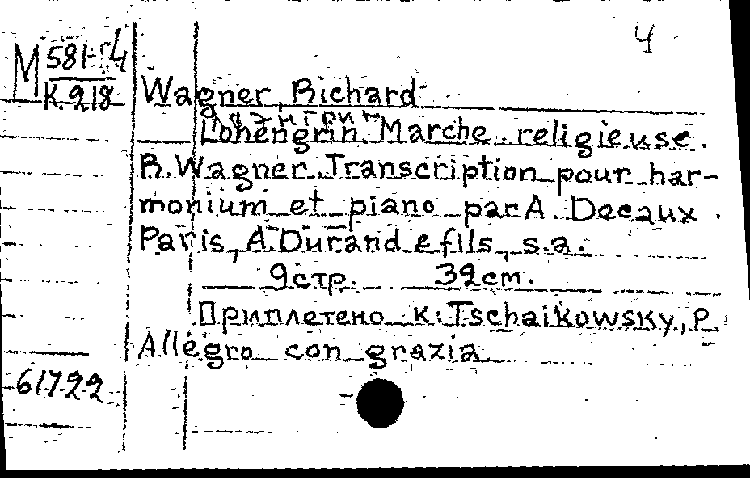 4
M 581-4
K.218
Wagner, Richard
Лоэнгрин
Lohengrin. Marche religieuse.
R. Wagner. Transcription pour har-
monium et piano par A. Decaux.
Paris, A. Durand e fils, s.a.
9 стр. 32 cm.
Приплетено к: Tschaikowsky, P.
Allegro con grazia
61722